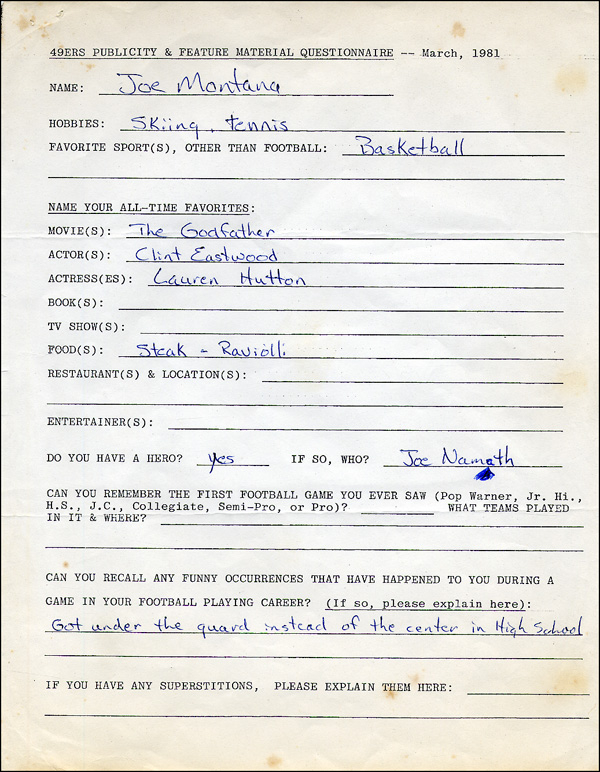 49ERS PUBLICITY & FEATURE MATERIAL QUESTIONNAIRE -- March, 1981
NAME: Joe Montana
HOBBIES: Skiing, tennis
FAVORITE SPORT(S), OTHER THAN FOOTBALL: Basketball
NAME YOUR ALL-TIME FAVORITES:
MOVIE(S): The Godfather
ACTOR(S): Clint Eastwood
ACTRESS(ES): Lauren Hutton
BOOK(S):
TV SHOW(S):
FOOD(S): Steak - Raviolli
RESTAURANT(S) & LOCATION(S):
ENTERTAINER(S):
DO YOU HAVE A HERO? yes IF SO, WHO? Joe Namath
CAN YOU REMEMBER THE FIRST FOOTBALL GAME YOU EVER SAW (Pop Warner, Jr. Hi.,
H.S., J.C., Collegiate, Semi-Pro, or Pro)? WHAT TEAMS PLAYED
IN IT & WHERE?
CAN YOU RECALL ANY FUNNY OCCURRENCES THAT HAVE HAPPENED TO YOU DURING A
GAME IN YOUR FOOTBALL PLAYING CAREER? (If so, please explain here):
Got under the guard instead of the center in High School
IF YOU HAVE ANY SUPERSTITIONS, PLEASE EXPLAIN THEM HERE: